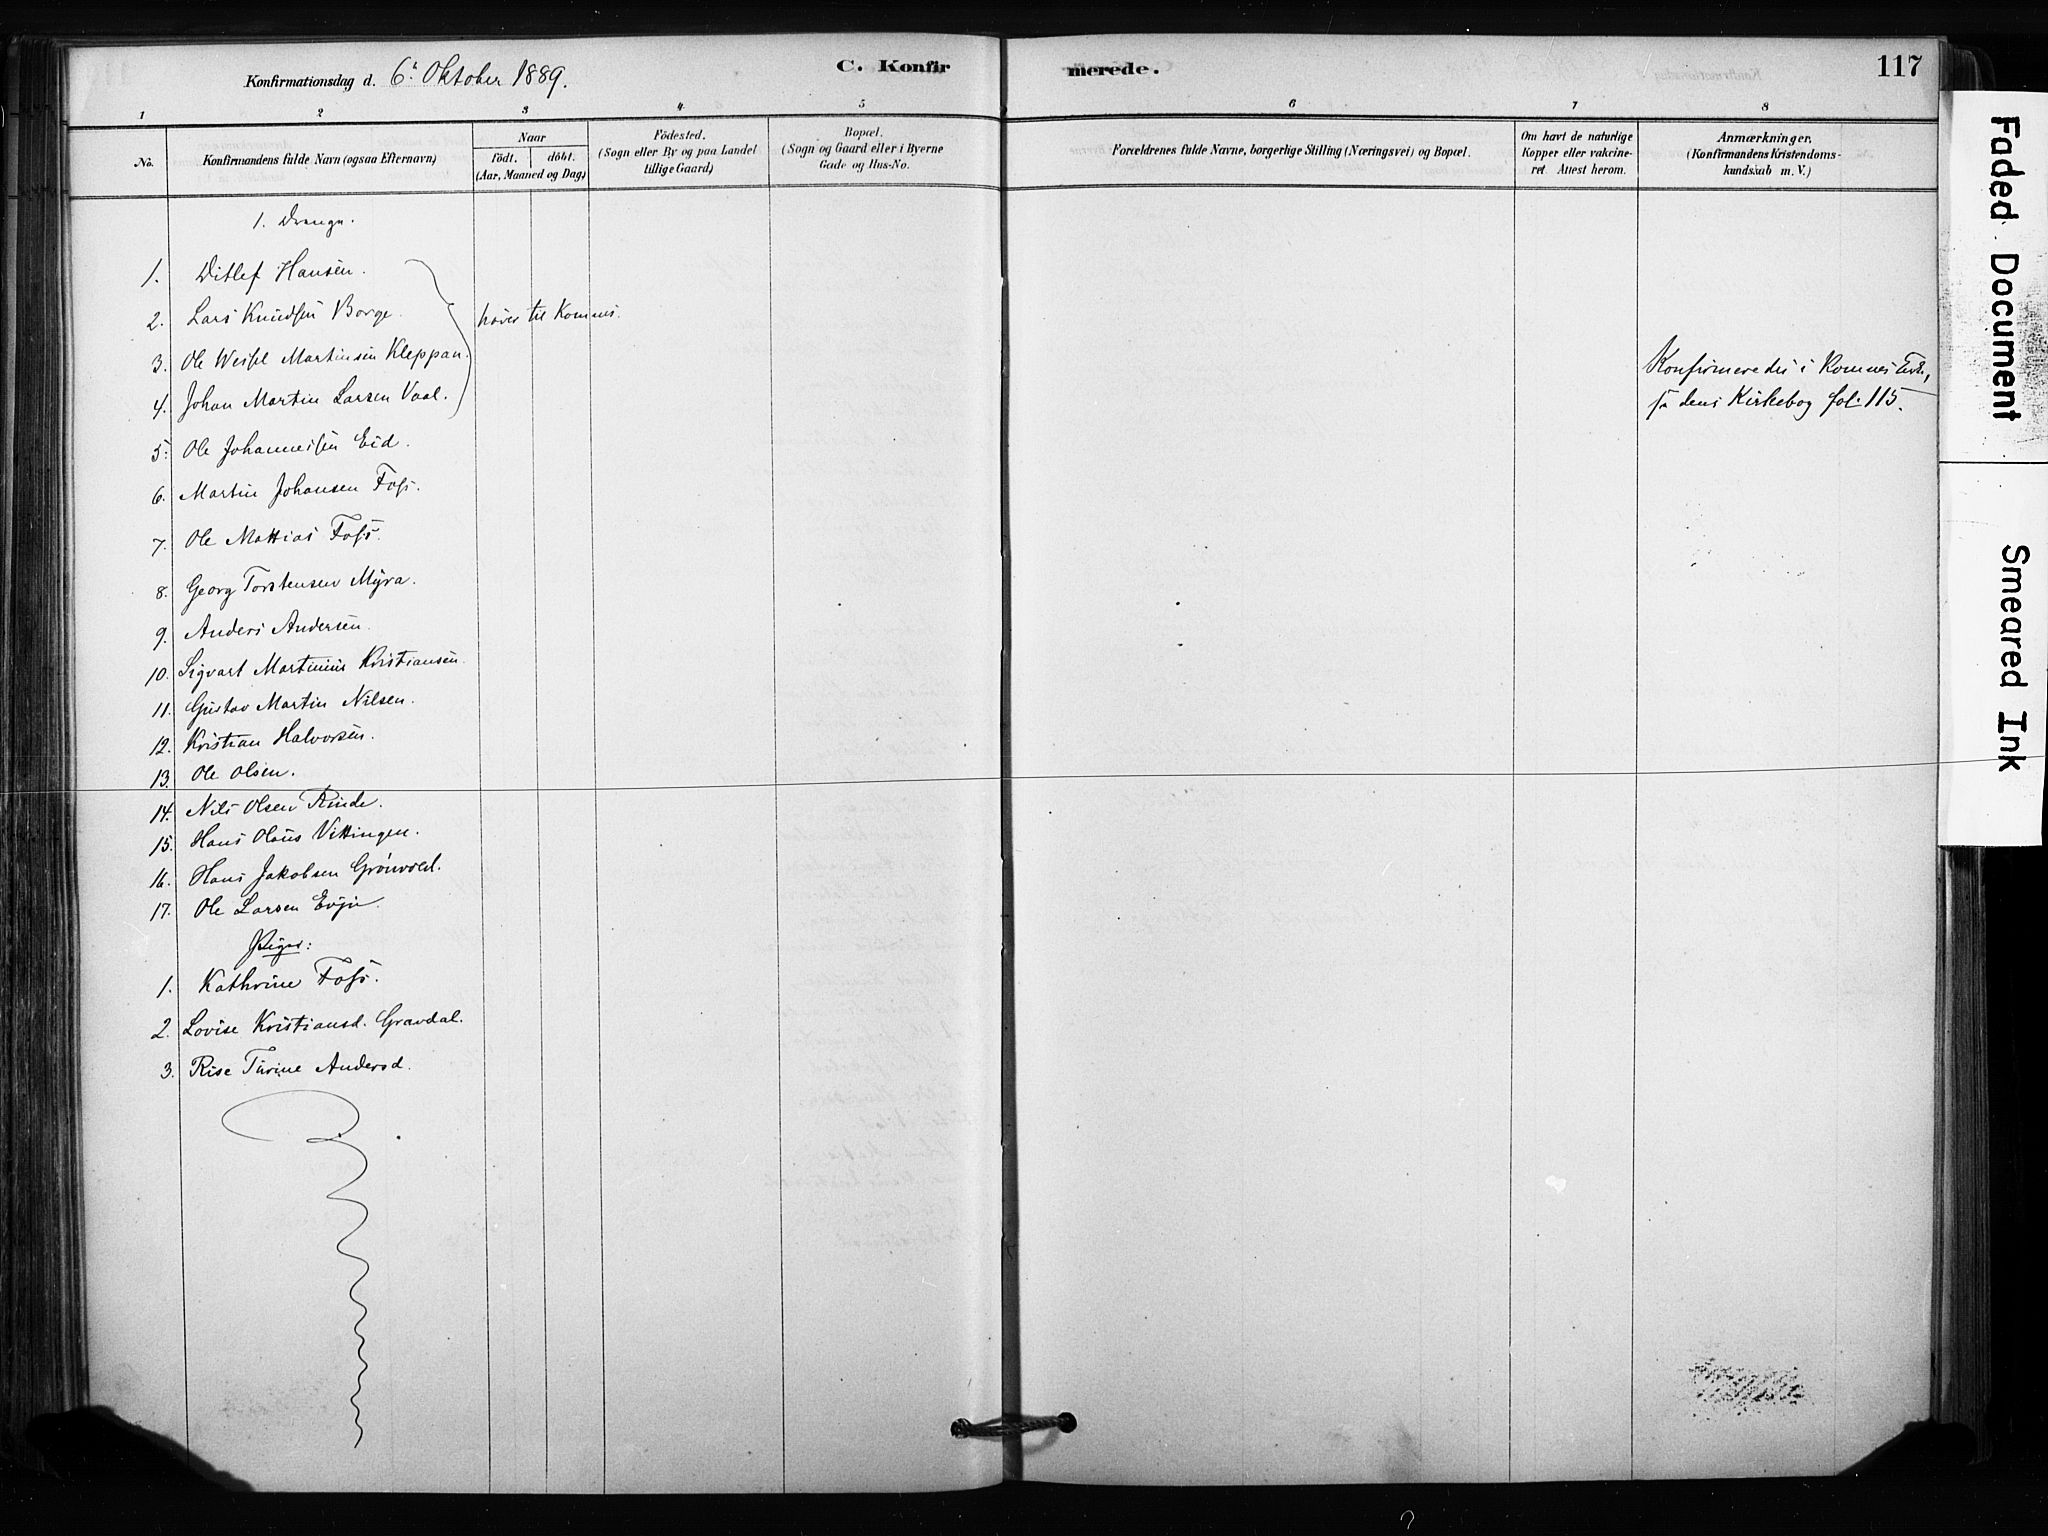 Konfirmationsdag d. 6' Oktober 1889.
C. Konfirmerede.
117
1 2 3 4 5 6 7 8
No.
Konfirmandens fulde Navn (ogsaa Efternavn)
Naar
födt. döbt.
(Aar, Maaned og Dag)
Födested.
(Sogn eller By og paa Landet
tillige Gaard)
Bopæl.
(Sogn og Gaard eller i Byerne
Gade og Hus-No.
Forældrenes fulde Navne, borgerlige Stilling (Næringsvei) og Bopæl.
Om havt de naturlige
Kopper eller vakcine-
ret. Attest herom.
Anmærkninger,
(Konfirmandens Kristendoms-
kundskab m. V.)
1. Drenge.
1. Ditlef Hansen.
2. Lars Knudsen Borge. hører til Komnes.
3. Ole Martinsen Kleppan.
4. Johan Martin Larsen Vaal.
Konfirmeredes i Komnes
dens Kirkebog fol. 115.
5. Ole Johannessen Eid.
6. Martin Johansen Foss.
7. Ole Mattias Foss.
8. Georg Torstensen Myra.
9. Anders Andersen.
10. Sigvart Martinius Kristiansen.
11. Gustav Martin Nilsen.
12. Kristian Halvorsen.
13. Ole Olsen.
14. Nils Olsen Rinde.
15. Hans Olaus Vittingen.
16. Hans Jakobsen Grønvold.
17. Ole Larsen Evju.
Piger:
1. Kathrine Foss.
2. Lovise Kristiansd. Gravdal.
3. Rise Turine Andersd.
Faded Document
Smeared Ink